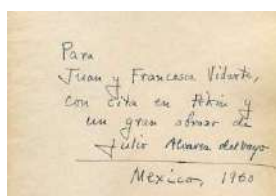 Para
Juan y Francesca Vidarte,
con cita en Pekin y
un gran abrazo de
Julio Alvarez del Vayo
Mexico, 1960